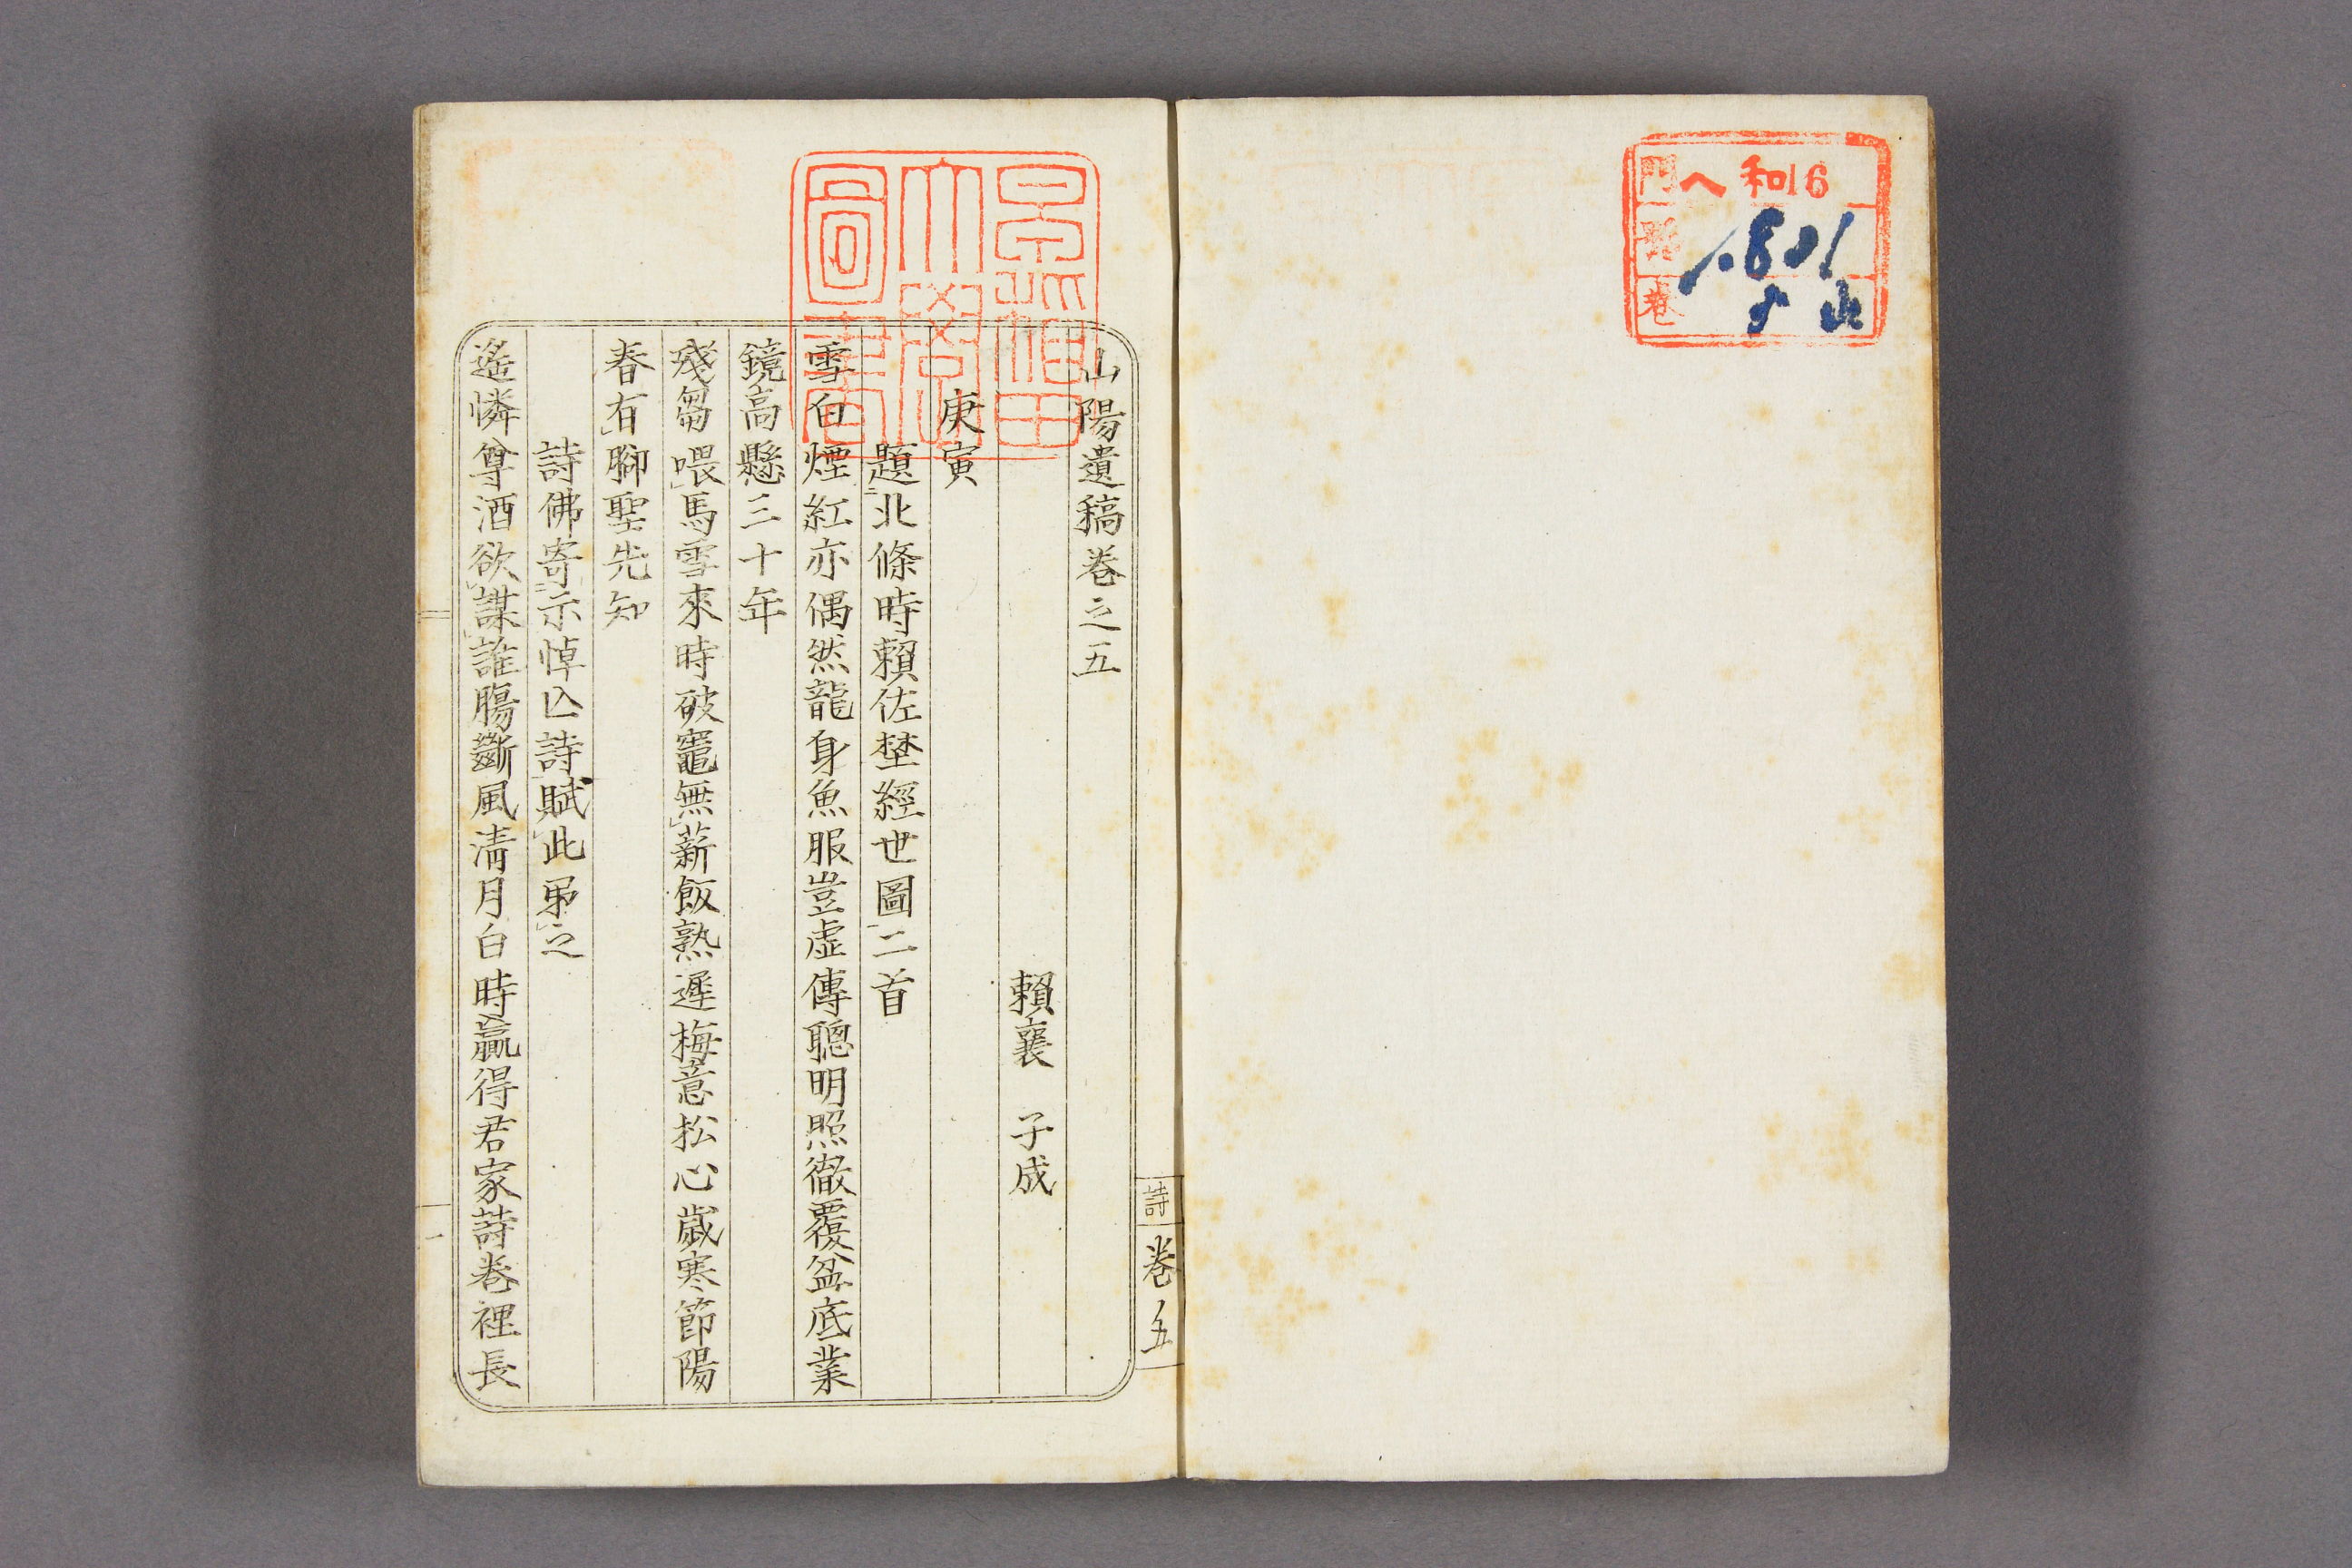 門 ヘ 和16
1801
巻
詩 巻五
山陽遺稿巻之五
賴襄 子成
庚寅
題北條時賴佐埜經世圖二首
雪白煙紅亦偶然龍身魚服豈虛傳聰明照徹覆盆底業
鏡高懸三十年
殘芻喂馬雪來時破竈無薪飯熟遲梅意松心歲寒節陽
春有腳聖先知
詩佛寄示悼亾詩賦此弔之
遙憐尊酒欲謀誰腸斷風淸月白時贏得君家詩巻裡長
一